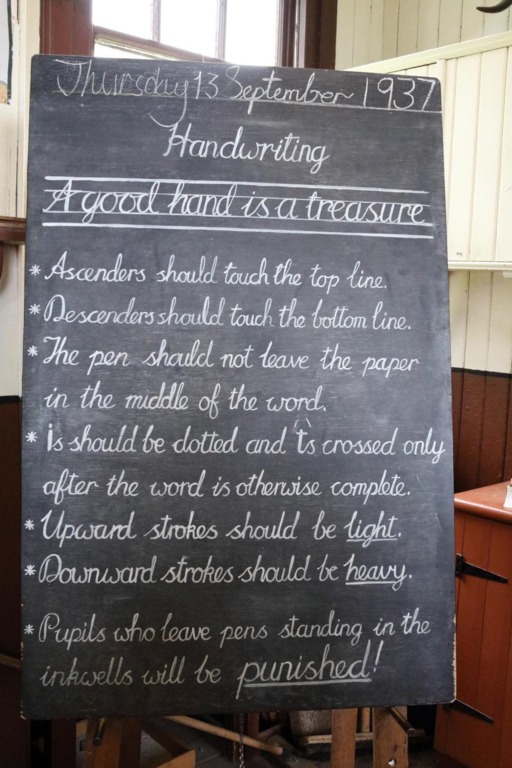 Thursday 13 September 1937
Handwriting
A good hand is a treasure
* Ascenders should touch the top line.
* Descenders should touch the bottom line.
* The pen should not leave the paper
in the middle of the word.
* is should be dotted and ts crossed only
after the word is otherwise complete.
* Upward strokes should be light.
* Downward strokes should be heavy.
* Pupils who leave pens standing in the
inkwells will be punished!